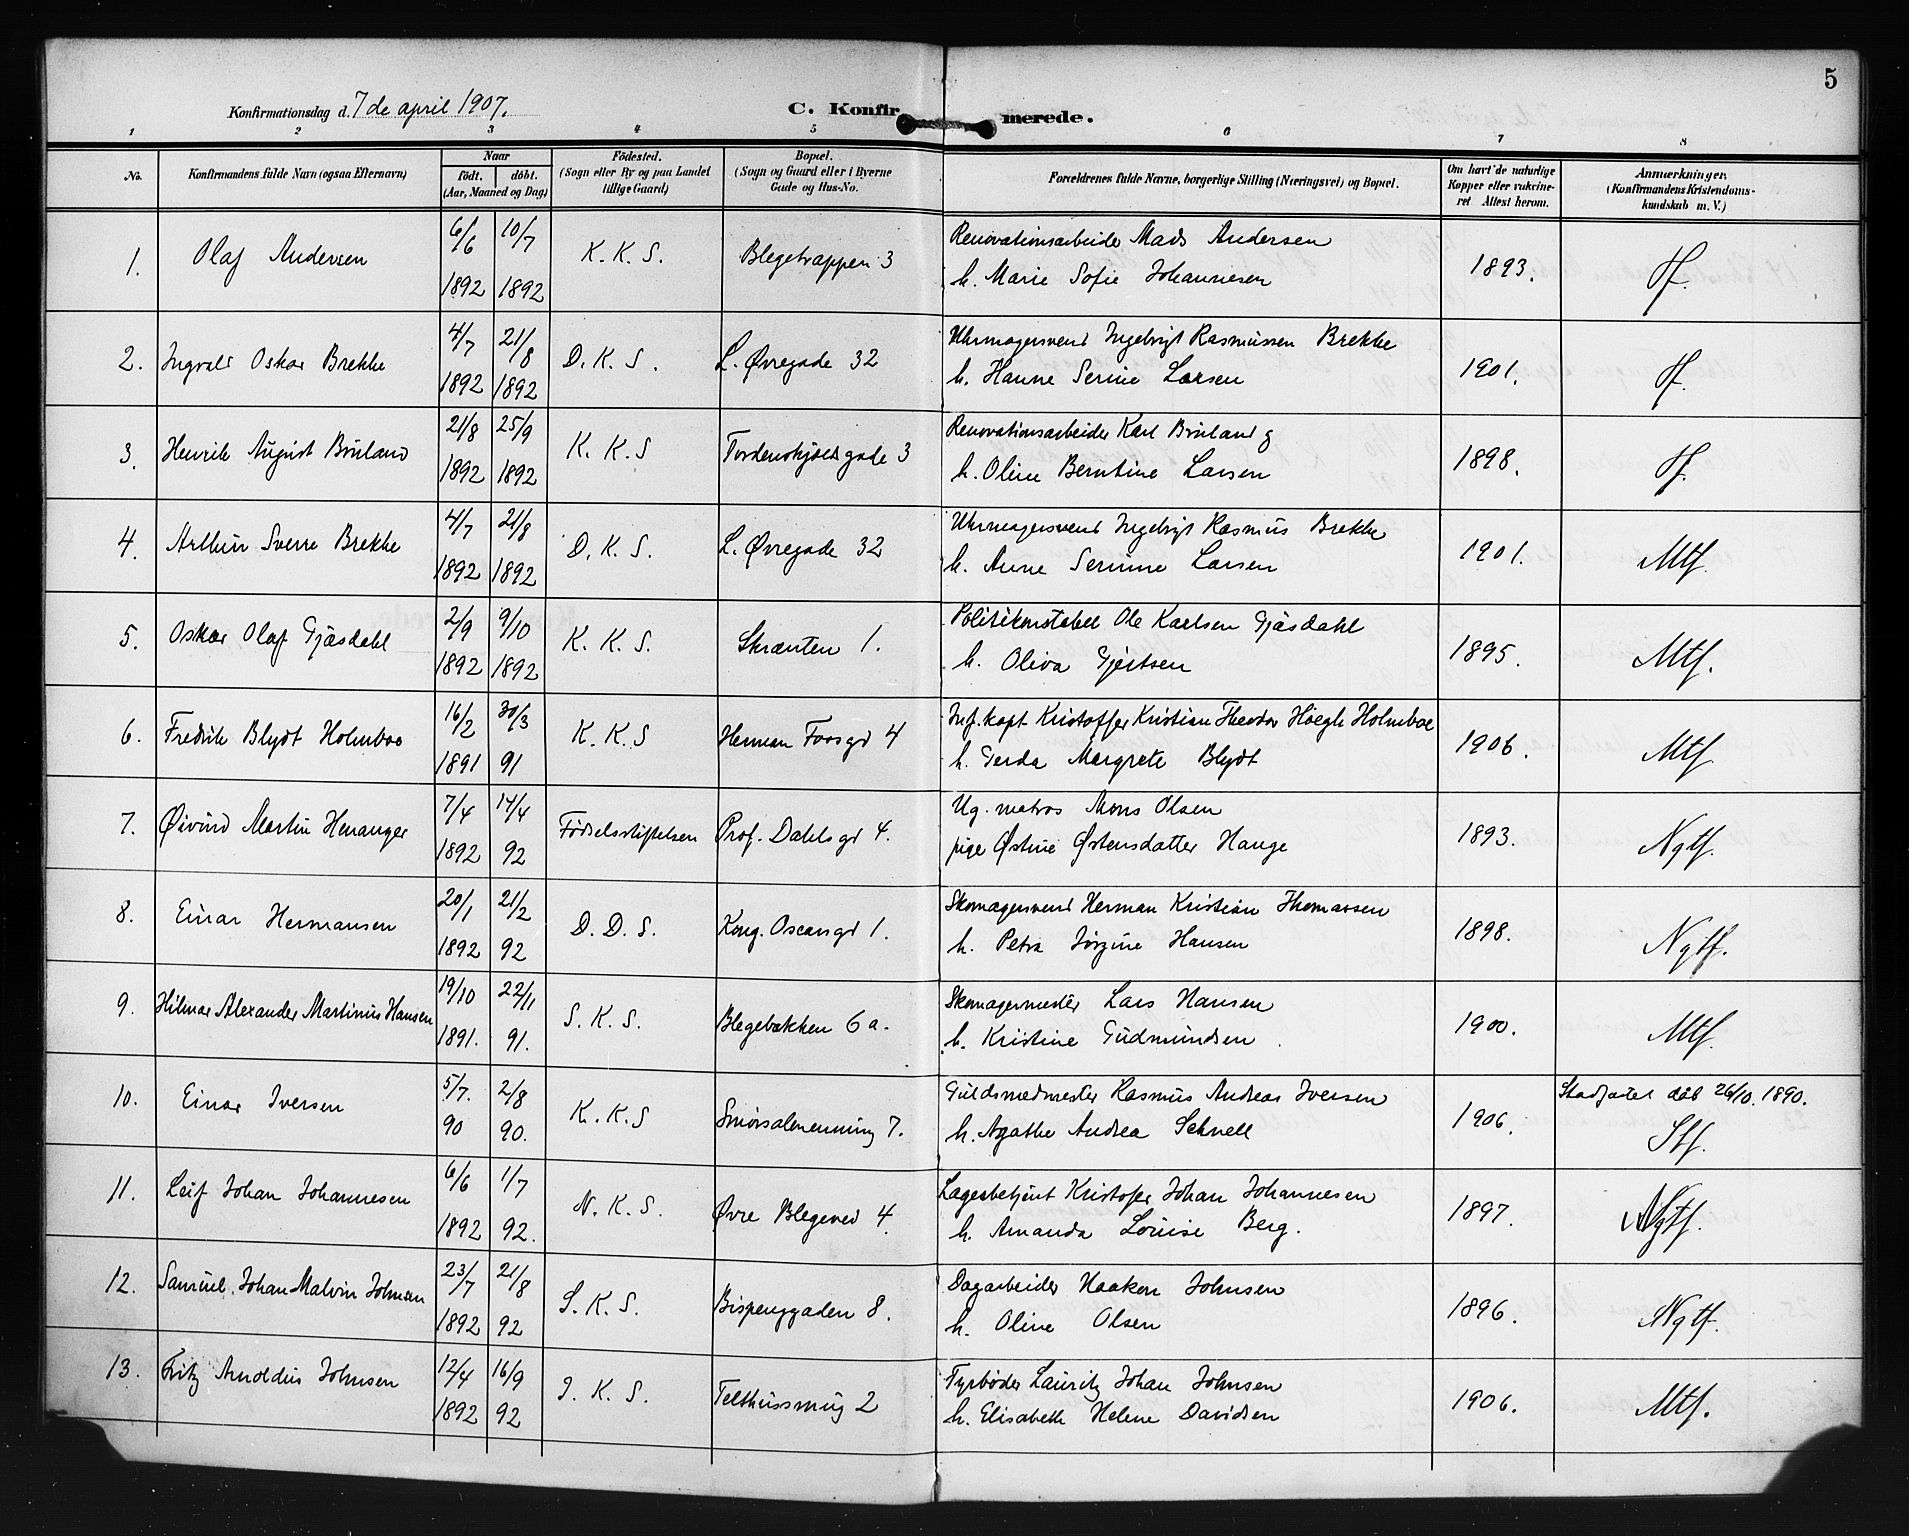 5
Konfirmationsdag d. 7de april 1907. C. Konfirmerede.
1 2 3 4 5 6 7 8
No. Konfirmandens fulde Navn (ogsaa Efternavn) Naar födt. döbt. (Aar, Maaned og Dag) Födested. (Sogn eller By og paa Landet tillige Gaard) Bopæl. (Sogn og Gaard eller i Byerne Gade og Hus-No. Forældrenes fulde Navne, borgerlige Stilling (Næringsvei) og Bopæl. Om havt de naturlige Kopper eller vakcineret Attest herom. Anmærkninger. (Konfirmandens Kristendomskundskab m. V.)
1. Olaf Andersen 6/6 1892 10/7 1892 K. K. S. Blegetrappen 3 Renovationsarbeider Mads Andersen
h. Marie Sofie Johannesen 1893. Tf.
2. Ingvald Oskar Brekke 4/7 1892 21/8 1892 D. K. S. L. Øvregade 32 Uhrmagersvend Ingebrigt Rasmussen Brekke
h. Hanne Serine Larsen 1901. Tf.
3. Henrik August Bruland 21/8 1892 25/9 1892 K. K. S Tordenskjoldsgade 3 Renovationsarbeider Karl Bruland g
h. Oline Berntine Larsen 1898. Tf.
4. Arthur Sverre Brekke 4/7 1892 21/8 1892 D. K. S. L. Øvregade 32 Uhrmagersvend Ingebrigt Rasmus Brekke
h. Anne Serinne Larsen 1901. Mtf.
5. Oskar Olaf Gjåsdahl 2/9 1892 9/10 1892 K. K. S. Skrænten 1. Politikonstabel Ole Karlsen Gjåsdahl
h. Oliva Gjertsen 1895. Mtf.
6. Fredrik Blydt Holmboe 16/2 1891 30/3 91 K. K. S Herman Fossgd 4 Inf. kapt Kristoffer Kristian Theodor Höegh Holmboe
h. Gerda Margrete Blydt 1906. Mtf.
7. Øivind Martin Henanger 7/4 1892 14/4 92 Födselsstiftelsen Prof. Dahls gd 4. Ug. matros Mons Olsen
pige Østine Østensdatter Hauge 1893. Ngtf.
8. Einar Hermansen 20/1 1892 21/2 92 D. D. S. Kong. Oscarsgd 1. Skomagersvend Herman Kristian Thomassen
h. Petra Jörgine Hansen 1898. Ngtf.
9. Hilmar Alexander Martinius Hansen 19/10 1891. 22/11 91. S. K. S. Blegebakken 6 a. Skomagermester Lars Hansen
h. Kristine Gudmundsen 1900. Mtf.
10. Einar Iversen 5/7. 90 2/8 90. K. K. S Smörsalmenning 7. Guldsmedmester Rasmus Andreas Iversen
h. Agathe Andrea Schnell 1906. Stadfæstet dåb 26/10. 1890.
Stf.
11. Leif Johan Johannesen 6/6 1892 1/7 92. N. K. S. Øvre Blegeved 4. Lagerbetjent Kristofer Johan Johannesen
h. Amanda Louise Berg. 1897. Ngtf.
12. Samuel Johan Malvin Johnsen 23/7 1892 21/8 92 S. K. S. Bispenggaden 8. Dagarbeider Haakon Johnsen
h. Oline Olsen 1896. Ngtf.
13. Fritz Arnoldus Johnsen 12/4 1892 16/9 92 J. K. S. Telthussmug 2 Fyrböder Lauritz Johan Johnsen
h. Elisabeth Helene Davidsen 1906. Mtf.